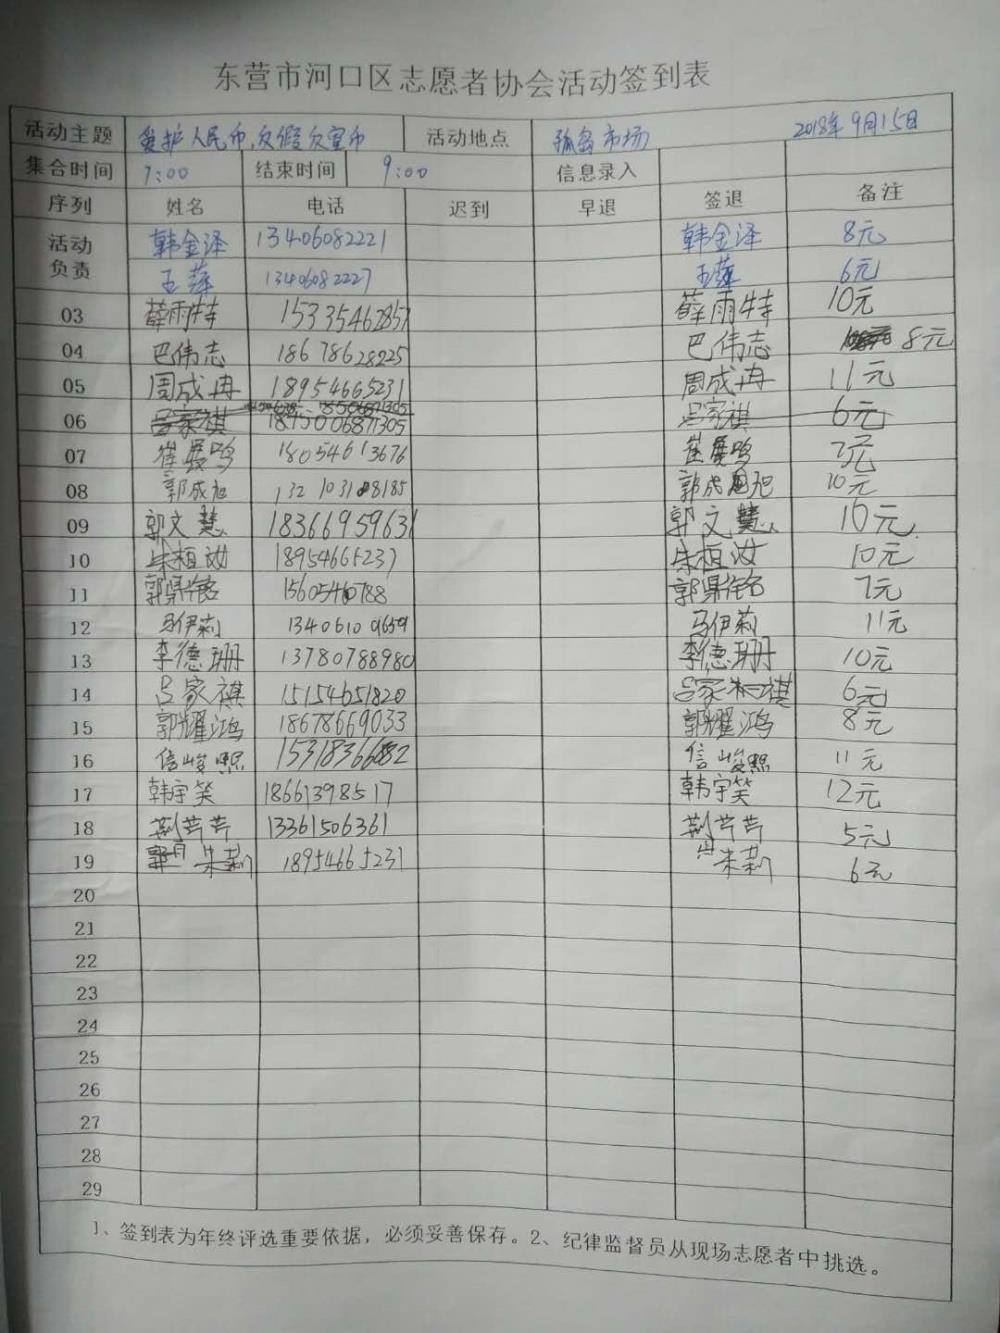 东营市河口区志愿者协会活动签到表
活动主题 爱护人民币,反假 宣币 活动地点 市场 2018年9月15日
集合时间 7:00 结束时间 9:00 信息录入
序列 姓名 电话 迟到 早退 签退 备注
活动负责 韩金泽 13406082221 韩金泽 8元
王萍 13406082227 王萍 6元
03 薛雨特 15335462857 薛雨特 10元
04 巴伟志 18678628225 巴伟志 8元
05 周成冉 18954665231 周成冉 11元
06 吕家祺 1875006871305 吕家祺 6元
07 崔展鸣 18054613676 崔展鸣 7元
08 郭成旭 132103188185 郭成旭 10元
09 郭文慧 18366959631 郭文慧 10元
10 朱桓汝 18954665231 朱桓汝 10元
11 郭 铭 郭 铭 7元
12 马伊莉 13406109659 马伊莉 11元
13 李德珊 13780788980 李德珊 10元
14 吕家祺 15154651820 吕家 祺 6元
15 郭耀鸿 18678669033 郭耀鸿 8元
16 信峻熙 信峻熙 11元
17 韩宇笑 18661398517 韩宇笑 12元
18 荆芹芹 13361506361 荆芹芹 5元
19 朱莉 18954665231 朱莉 6元
20
21
22
23
24
25
26
27
28
29
1、签到表为年终评选重要依据，必须妥善保存。2、纪律监督员从现场志愿者中挑选。